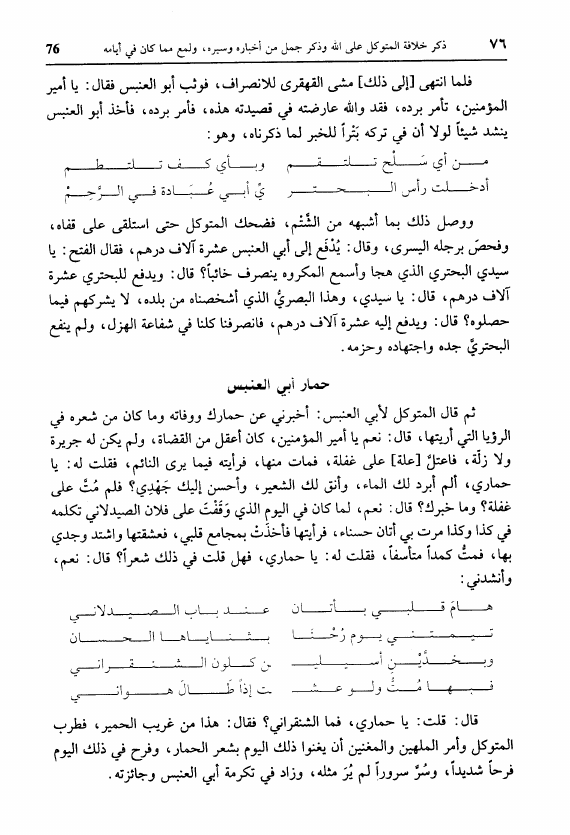 ٧٦ ذكر خلافة المتوكل على الله وذكر جمل من أخباره وسيره، ولمع مما كان في أيامه 76
فلما انتهى [إلى ذلك] مشى القهقرى للانصراف، فوثب أبو العنبس فقال: يا أمير
المؤمنين، تأمر برده، فقد والله عارضته في قصيدته هذه، فأمر برده، فأخذ أبو العنبس
ينشد شيئاً لولا أن في تركه بَتْراً للخبر لما ذكرناه، وهو:
مـن أي سَـلْح تـلتـقـم وبـأي كـف تـلـتـطـم
أدخـلت رأس الـبـحـتـر يْ أبـي عُـبَـادة فـي الـرَّحِـمْ
ووصل ذلك بما أشبهه من الشَّتْم، فضحك المتوكل حتى استلقى على قفاه،
وفحصَ برجله اليسرى، وقال: يُدْفَع إلى أبي العنبس عشرة آلاف درهم، فقال الفتح: يا
سيدي البحتري الذي هجا وأسمع المكروه ينصرف خائباً؟ قال: ويدفع للبحتري عشرة
آلاف درهم، قال: يا سَيدي، وهذا البصريُّ الذي أشخصناه من بلده، لا يشركهم فيما
حصلوه؟ قال: ويدفع إليه عشرة آلاف درهم، فانصرفنا كلنا في شفاعة الهزل، ولم ينفع
البحتريَّ جده واجتهاده وحزمه.
حمار أبي العنبس
ثم قال المتوكل لأبي العنبس: أخبرني عن حمارك ووفاته وما كان من شعره في
الرؤيا التي أريتها، قال: نعم يا أمير المؤمنين، كان أعقل من القضاة، ولم يكن له جريرة
ولا زلّة، فاعتلَّ [علة] على غفلة، فمات منها، فرأيته فيما يرى النائم، فقلت له: يا
حماري، ألم أبرد لك الماء، وأنق لك الشعير، وأحسن إليك جَهْدِي؟ فلم مُتَّ على
غفلة؟ وما خبرك؟ قال: نعم، لما كان في اليوم الذي وَقَفْتَ على فلان الصيدلاني تكلمه
في كذا وكذا مرت بي أتان حسناء، فرأيتها فأخذَتْ بمجامع قلبي، فعشقتها واشتد وجدي
بها، فمتُّ كمداً متأسفاً، فقلت له: يا حماري، فهل قلت في ذلك شعراً؟ قال: نعم،
وأنشدني:
هـامَ قـلـبـي بـأتـان عـنـد بـاب الـصـيـدلانـي
تـيـمـتـنـي يـوم رُحْـنَـا بـثـنـايـاهـا الـحـسـان
وبـخـدَّيْـنِ أسـيـلـيـ ـن كـلـون الـشـنـقـرانـي
فـبـهـا مُـتُّ ولـو عـشـ ـت إذاً طَـالَ هـوانـي
قال: قلت: يا حماري، فما الشنقراني؟ فقال: هذا من غريب الحمير، فطرب
المتوكل وأمر الملهين والمغنين أن يغنوا ذلك اليوم بشعر الحمار، وفرح في ذلك اليوم
فرحاً شديداً، وسُرَّ سروراً لم يُرَ مثله، وزاد في تكرمة أبي العنبس وجائزته.